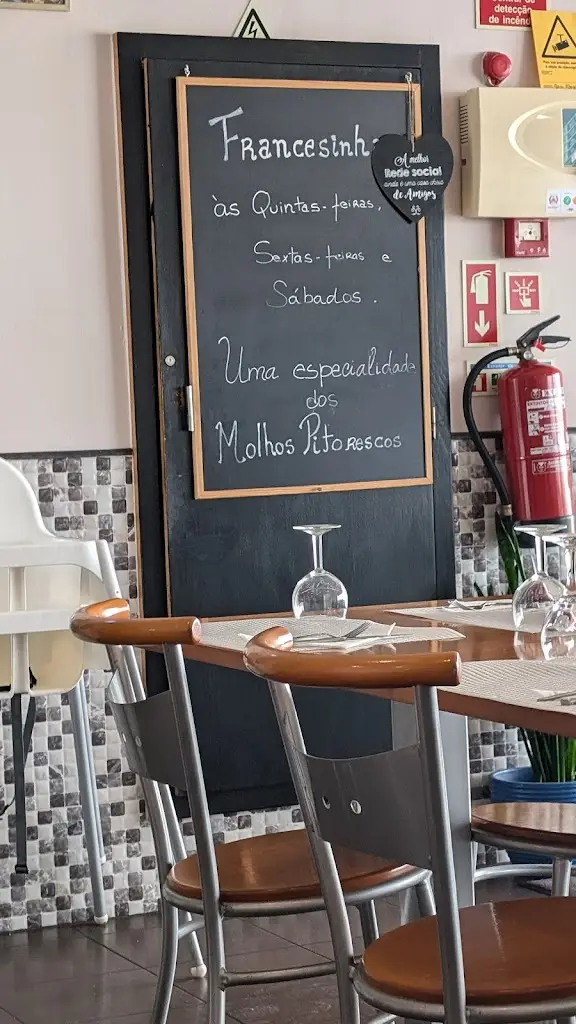 de detecção
de incêndio
Francesinh
A melhor
Rede social
ainda é uma casa cheia
de Amigos
às Quintas-feiras,
Sextas-feiras e
Sábados.
Uma especialidade
dos
Molhos Pitorescos